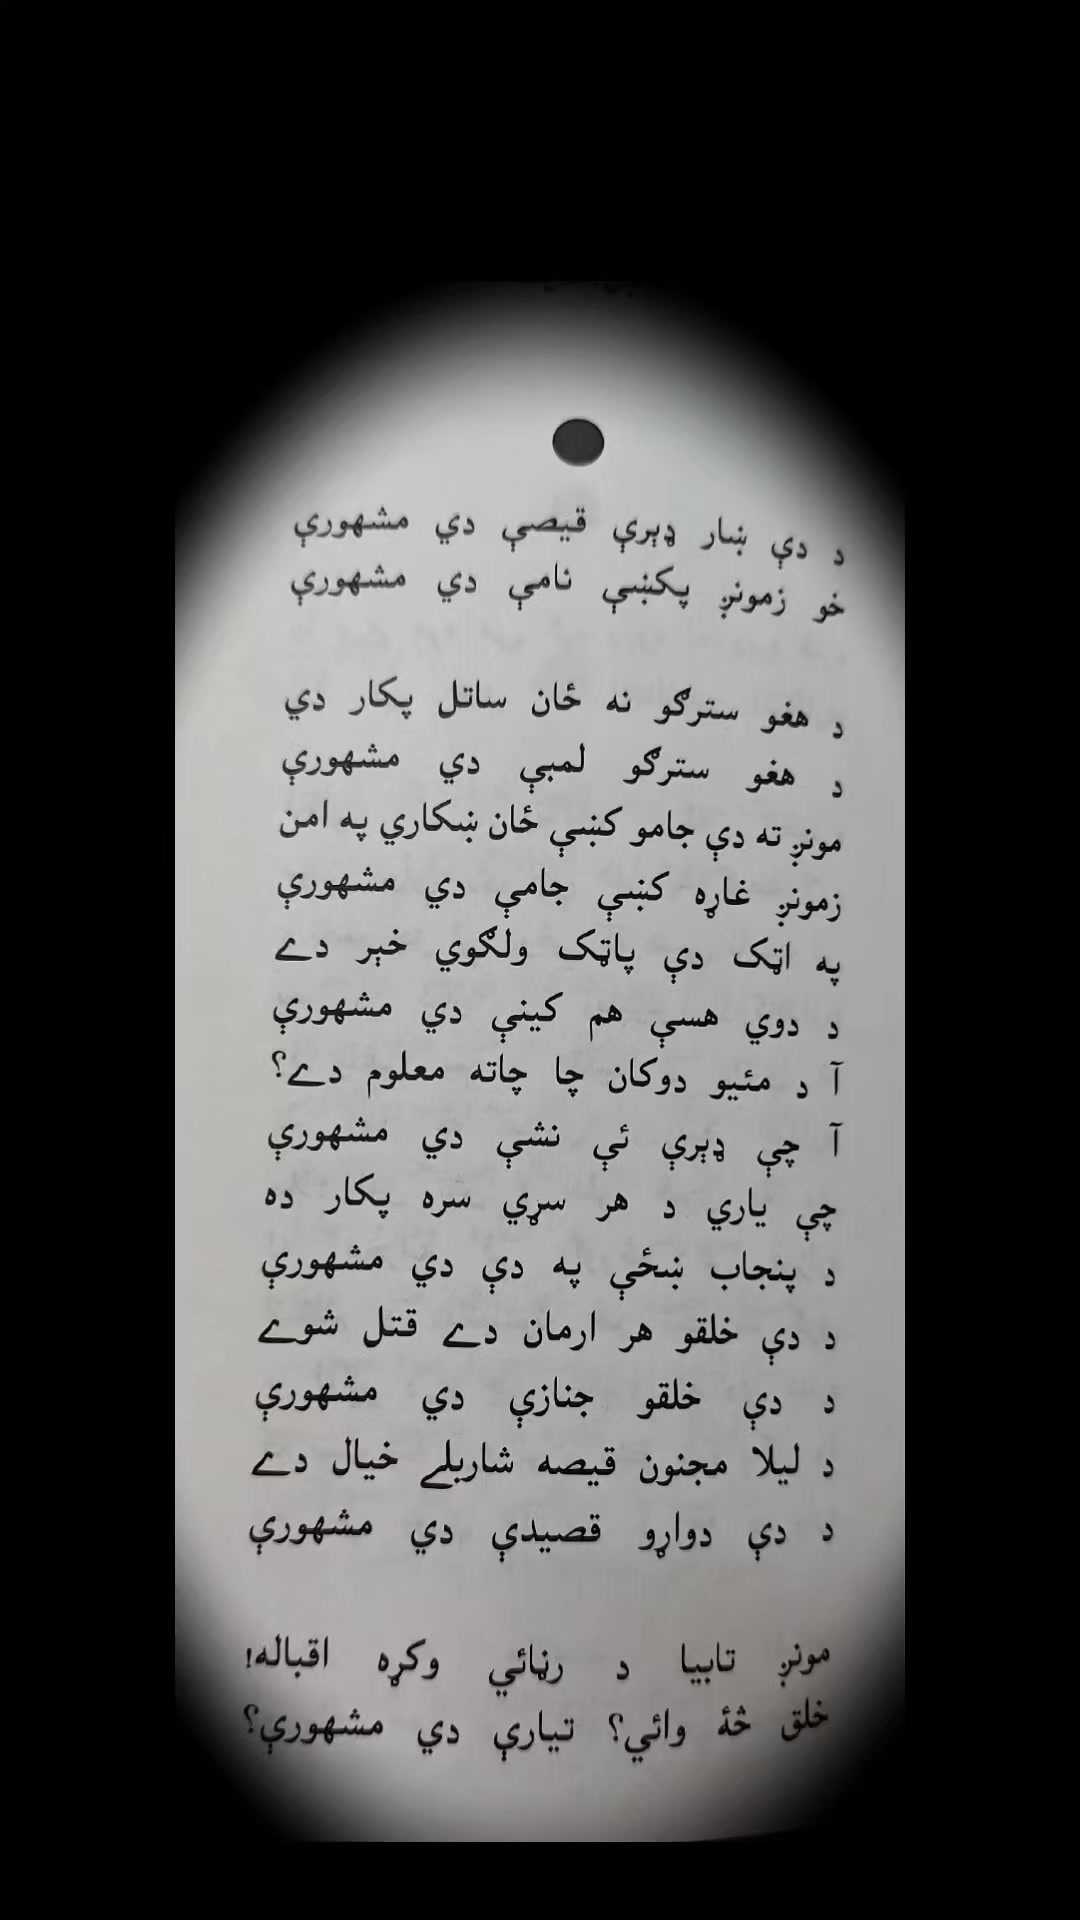 د دې ښار ډېرې قيصې دي مشهورې
خو زمونږ پکښې نامې دي مشهورې
د هغو سترګو نه ځان ساتل پکار دي
د هغو سترګو لمبې دي مشهورې
مونږ ته دې جامو کښې ځان ښکاري په امن
زمونږ غاړه کښې جامې دي مشهورې
په اټک دې پاټک ولګوي خېر دے
د دوي هسې هم کينې دي مشهورې
آ د مئيو دوکان چا چاته معلوم دے؟
آ چې ډېرې ئې نشې دي مشهورې
چې ياري د هر سړي سره پکار ده
د پنجاب ښځې په دې دي مشهورې
د دې خلقو هر ارمان دے قتل شوے
د دې خلقو جنازې دي مشهورې
د ليلا مجنون قيصه شاربلے خيال دے
د دې دواړو قصيدې دي مشهورې
مونږ تابيا د رڼائي وکړه اقباله!
خلق څۀ وائي؟ تيارې دي مشهورې؟